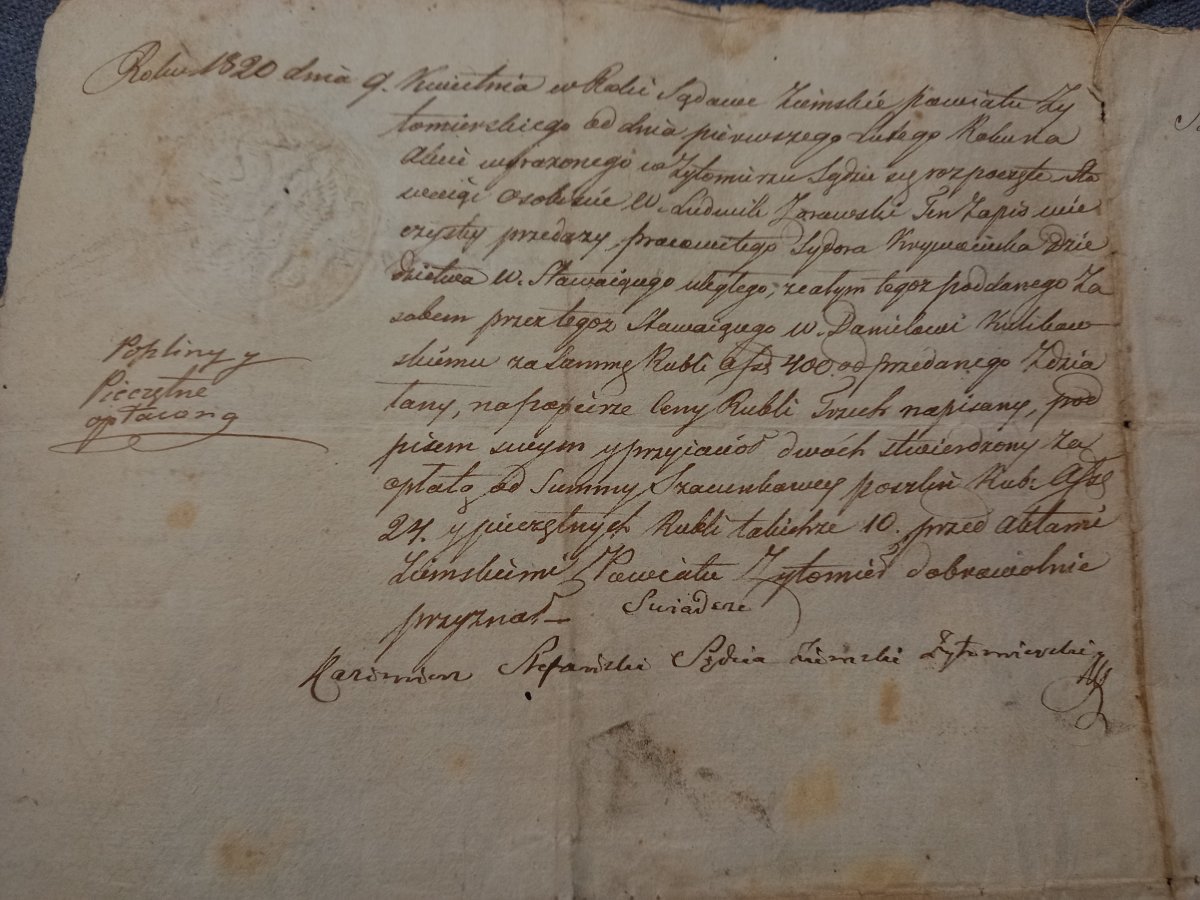 Roku 1820 dnia 9. Kwietnia w Roki Sądowe Ziemskie powiatu Ży
tomierskiego od dnia pierwszego Lutego Roku na
akcie wyrażonego w Żytomierzu Sądzić się rozpoczęte Sta
wający osobiście W. Ludwik Zorawski Ten Zapis wie
czysty przedaży pracowitego Sydora Dzie
dzictwa W. Stawaiącego uległego, z całym tegoż poddanego Za
sobem przez tegoż Stawaiącego W. Danielowi Kulikow
skiemu za Summę Rubli 400. od przedanego Zdzia
łany, na papierze Ceny Rubli Trzech napisany, pod
pisem swym y przyiaciół dwóch stwierdzony za
opłatą od Summy Szacunkowey poszlin Rub:
24. y pieczętnych Rubli takichże 10. przed aktami
Ziemskiemi Powiatu Żytomier dobrowolnie
przyznał –
Świadczę
Kazimierz Stefański Sędzia Ziemski Żytomierski
Poszliny y
Pieczętne
opłacono